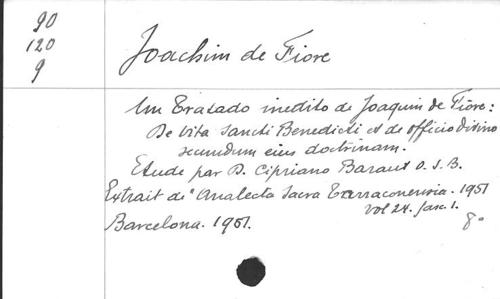 90
120
9
Joachim de Fiore
Un Tratado inedito de Joaquin de Fiore:
De Vita Sancti Benedicti et de officio divino
secundum eius doctrinam.
Etude par D. Cipriano Baraut O.S.B.
Extrait de "Analecta Sacra Tarraconensia. 1951
vol 24. fasc. 1.
Barcelona. 1951. 8°